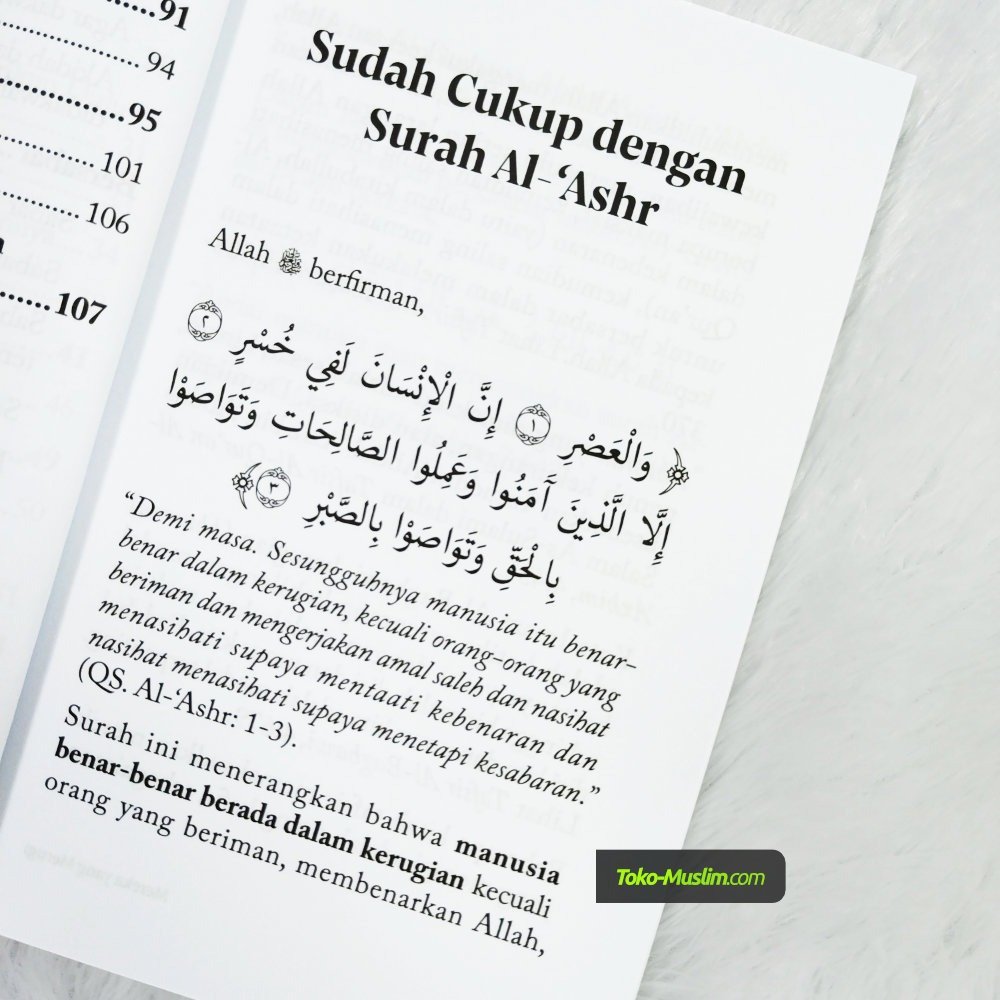 91
94
95
101
106
107
Sudah Cukup dengan
Surah Al-‘Ashr
Allah ﷻ berfirman,
﴿ وَالْعَصْرِ ۝١ إِنَّ الْإِنْسَانَ لَفِي خُسْرٍ ۝٢
إِلَّا الَّذِينَ آمَنُوا وَعَمِلُوا الصَّالِحَاتِ وَتَوَاصَوْا
بِالْحَقِّ وَتَوَاصَوْا بِالصَّبْرِ ۝٣ ﴾
“Demi masa. Sesungguhnya manusia itu benar-
benar dalam kerugian, kecuali orang-orang yang
beriman dan mengerjakan amal saleh dan nasihat
menasihati supaya mentaati kebenaran dan
nasihat menasihati supaya menetapi kesabaran.”
(QS. Al-‘Ashr: 1-3).
Surah ini menerangkan bahwa manusia
benar-benar berada dalam kerugian kecuali
orang yang beriman, membenarkan Allah,
Toko-Muslim.com